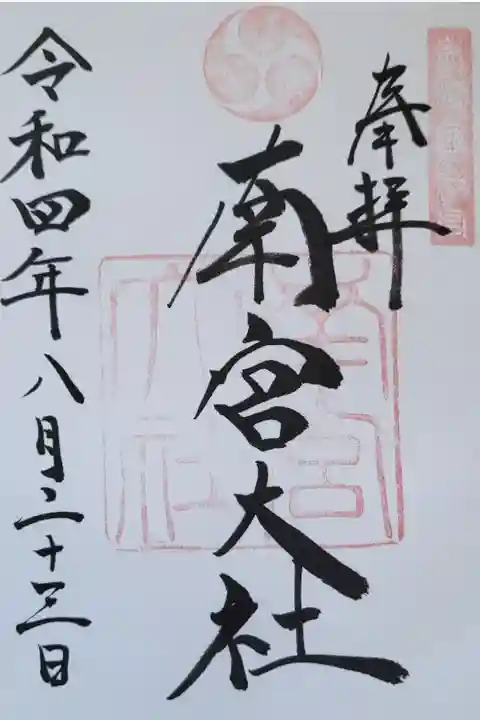 奉拝
南宮大社
令和四年八月二十三日
南宮大社